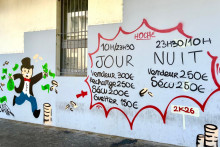 HOCHE
10H/23H30
JOUR
Vendeur 300€
Rechange 250€
Sécu 200€
Guetteur 150€
23H30/10H
NUIT
Vendeur 250€
Sécu 250€
2K26